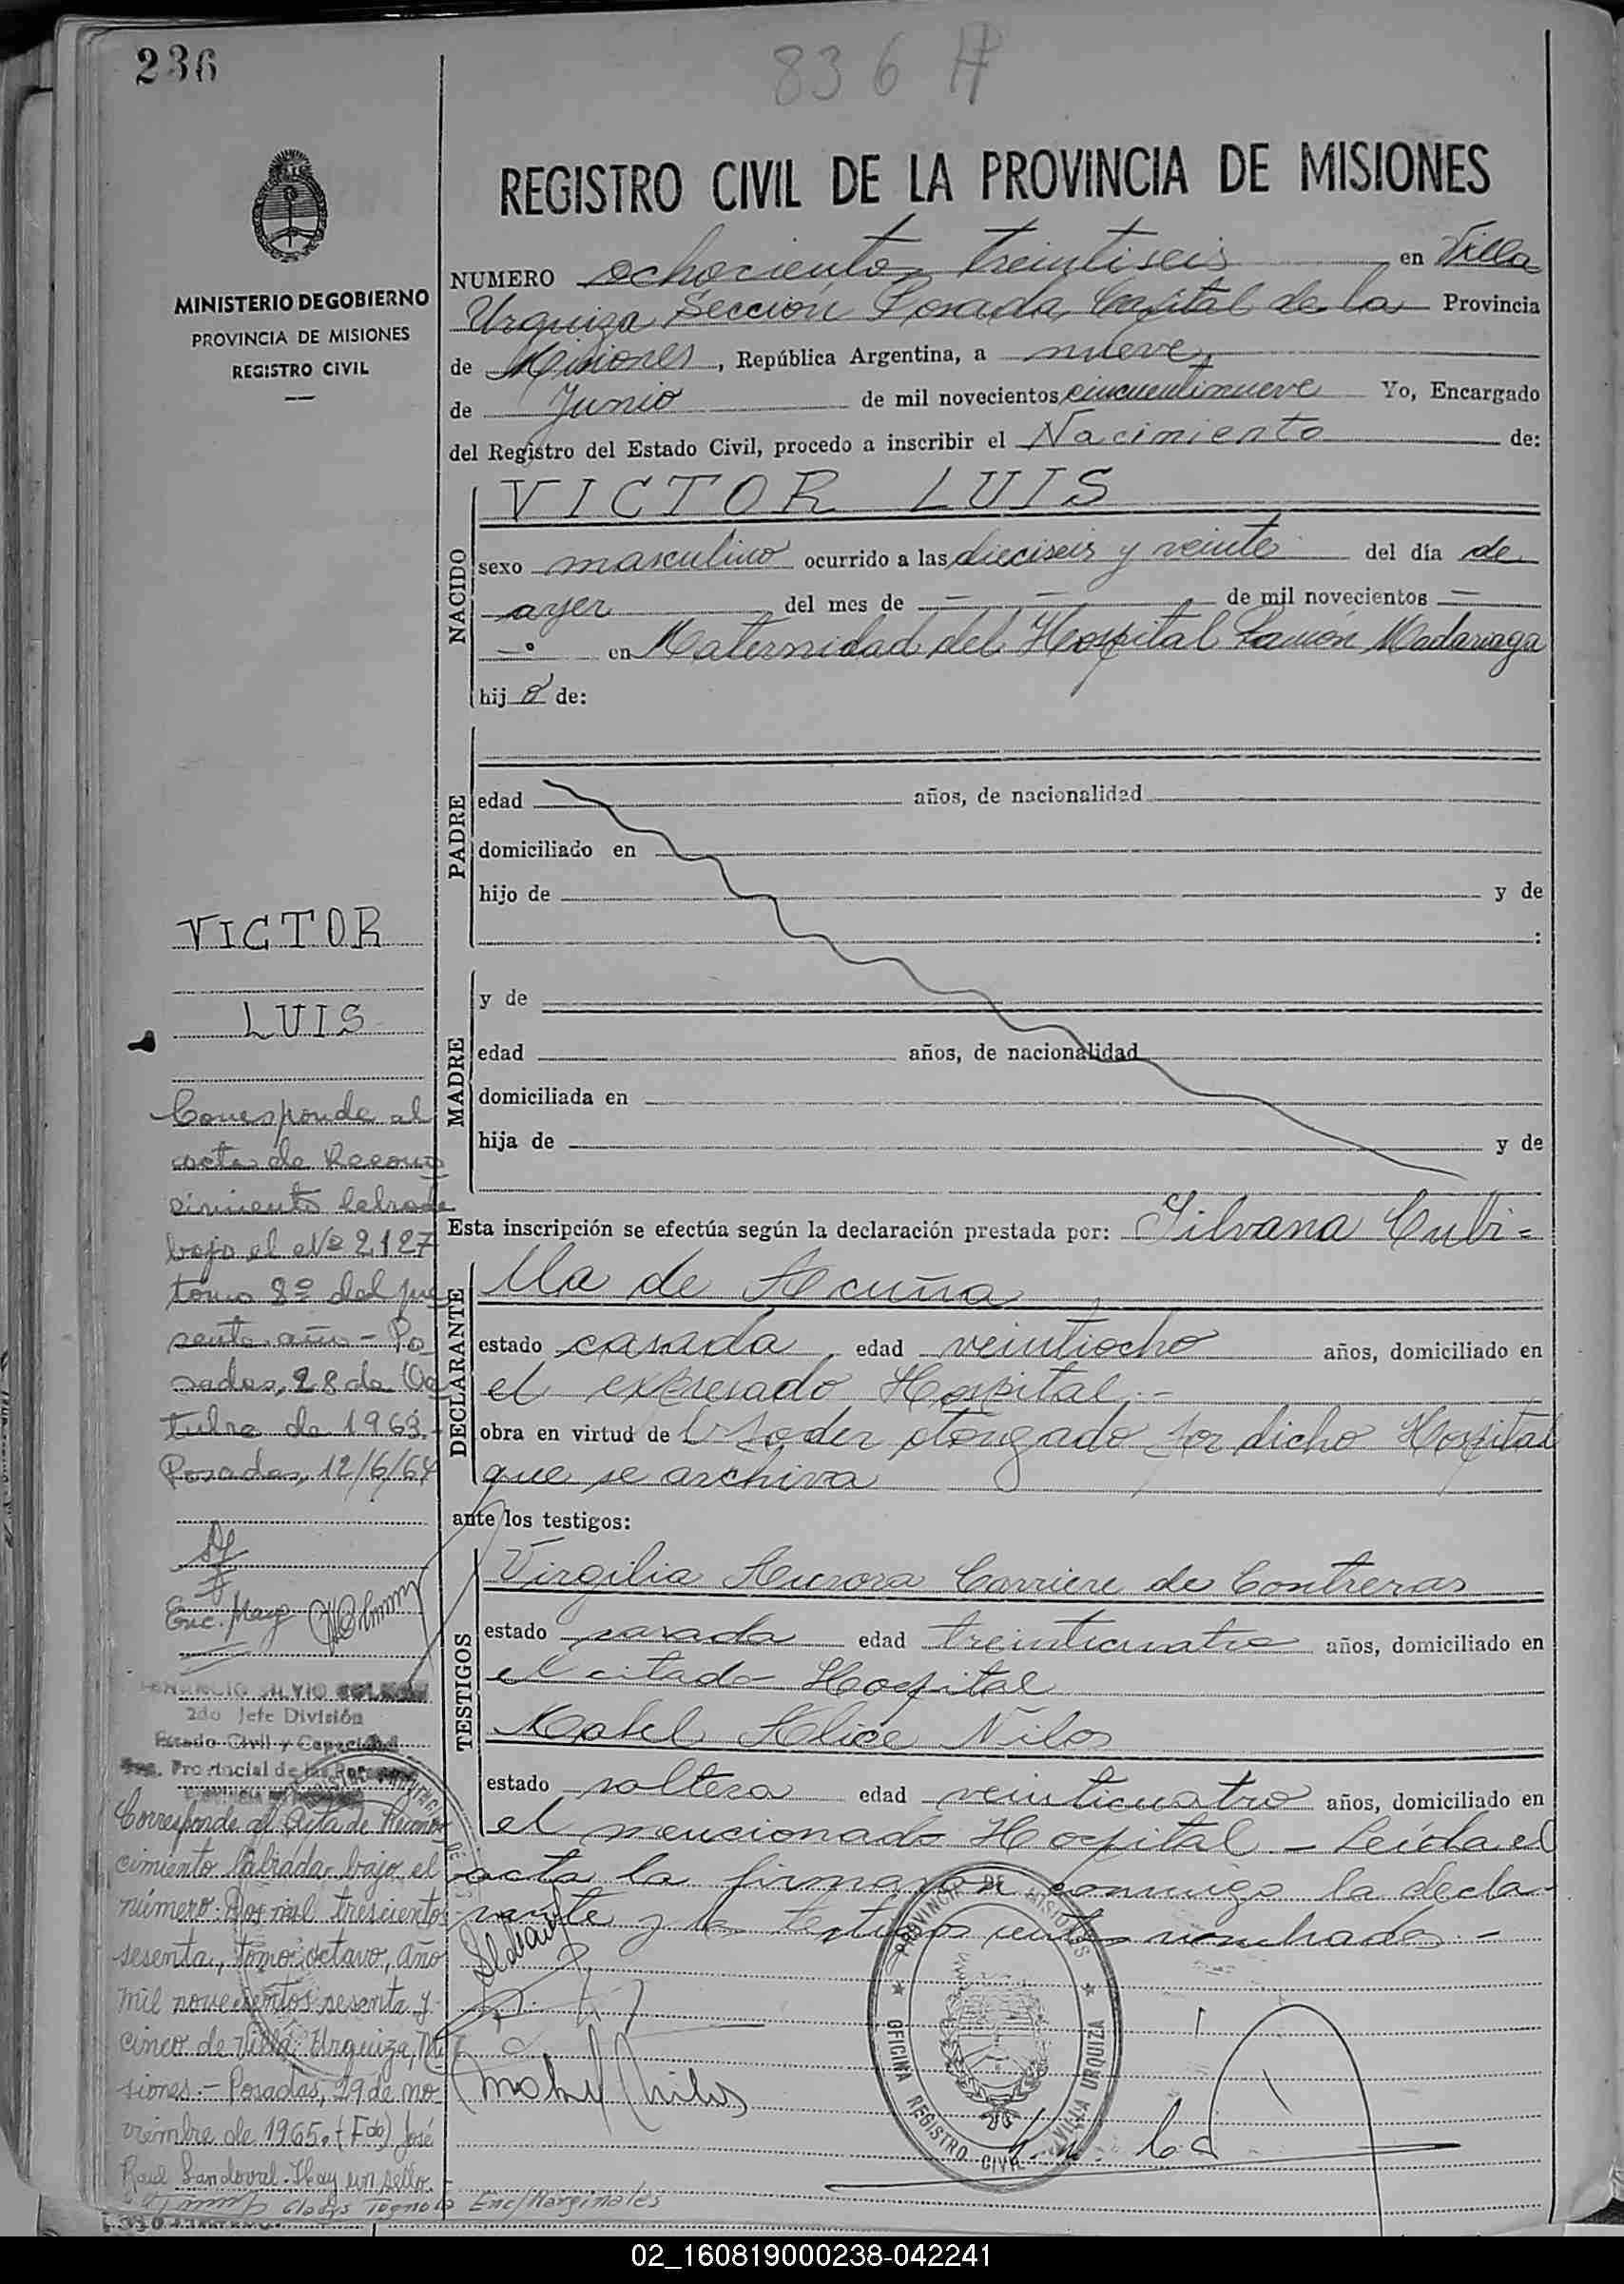 236
836 H
REGISTRO CIVIL DE LA PROVINCIA DE MISIONES
MINISTERIO DE GOBIERNO
PROVINCIA DE MISIONES
REGISTRO CIVIL
NUMERO ochociento treintiseis en Villa
Urquiza Sección Posadas Capital de la Provincia
de Misiones, República Argentina, a nueve
de Junio de mil novecientos cincuentinueve Yo, Encargado
del Registro del Estado Civil, procedo a inscribir el Nacimiento de:
NACIDO
VICTOR LUIS
sexo masculino ocurrido a las dieciseis y veinte del día de
ayer del mes de — — de mil novecientos —
en Maternidad del Hospital Ramón Madariaga
hij o de:
PADRE
edad años, de nacionalidad
domiciliado en
hijo de y de
:
MADRE
y de
edad años, de nacionalidad
domiciliada en
hija de y de
Esta inscripción se efectúa según la declaración prestada por: Silvana Cubi=
DECLARANTE
lla de Acuña
estado casada edad veintiocho años, domiciliado en
el expresado Hospital.-
obra en virtud de poder otorgado por dicho Hospital
que se archiva
ante los testigos:
TESTIGOS
Virgilia Aurora Carriere de Contreras
estado casada edad treinticuatro años, domiciliado en
el citado Hospital
Mabel Alice Nilos
estado soltera edad veinticuatro años, domiciliado en
el mencionado Hospital.- Leída el
acta la firmaron conmigo la decla-
rante y los testigos nombrados.-
VICTOR
LUIS
Corresponde al
acta de Recono
cimiento labrada
bajo el Nº 2127
tomo 8º del pre
sente año - Po
sadas, 28 de Oc
tubre de 1963.-
Posadas, 12/6/64
Enc. Marg
SILVIO
2do Jefe División
Estado Civil y Capacidad
Provincial de las
Corresponde al Acta de Recono
cimiento labrada bajo el
número: Dos mil trescientos
sesenta, tomo octavo, año
mil novecientos sesenta y
cinco de Villa Urquiza, Mi
siones.- Posadas, 29 de no
viembre de 1965. (Fdo) José
Raul Sandoval. Hay un sello.
Gladys Tognola Enc/Marginales
PROVINCIA DE MISIONES
OFICINA REGISTRO CIVIL VILLA URQUIZA
02_160819000238-042241